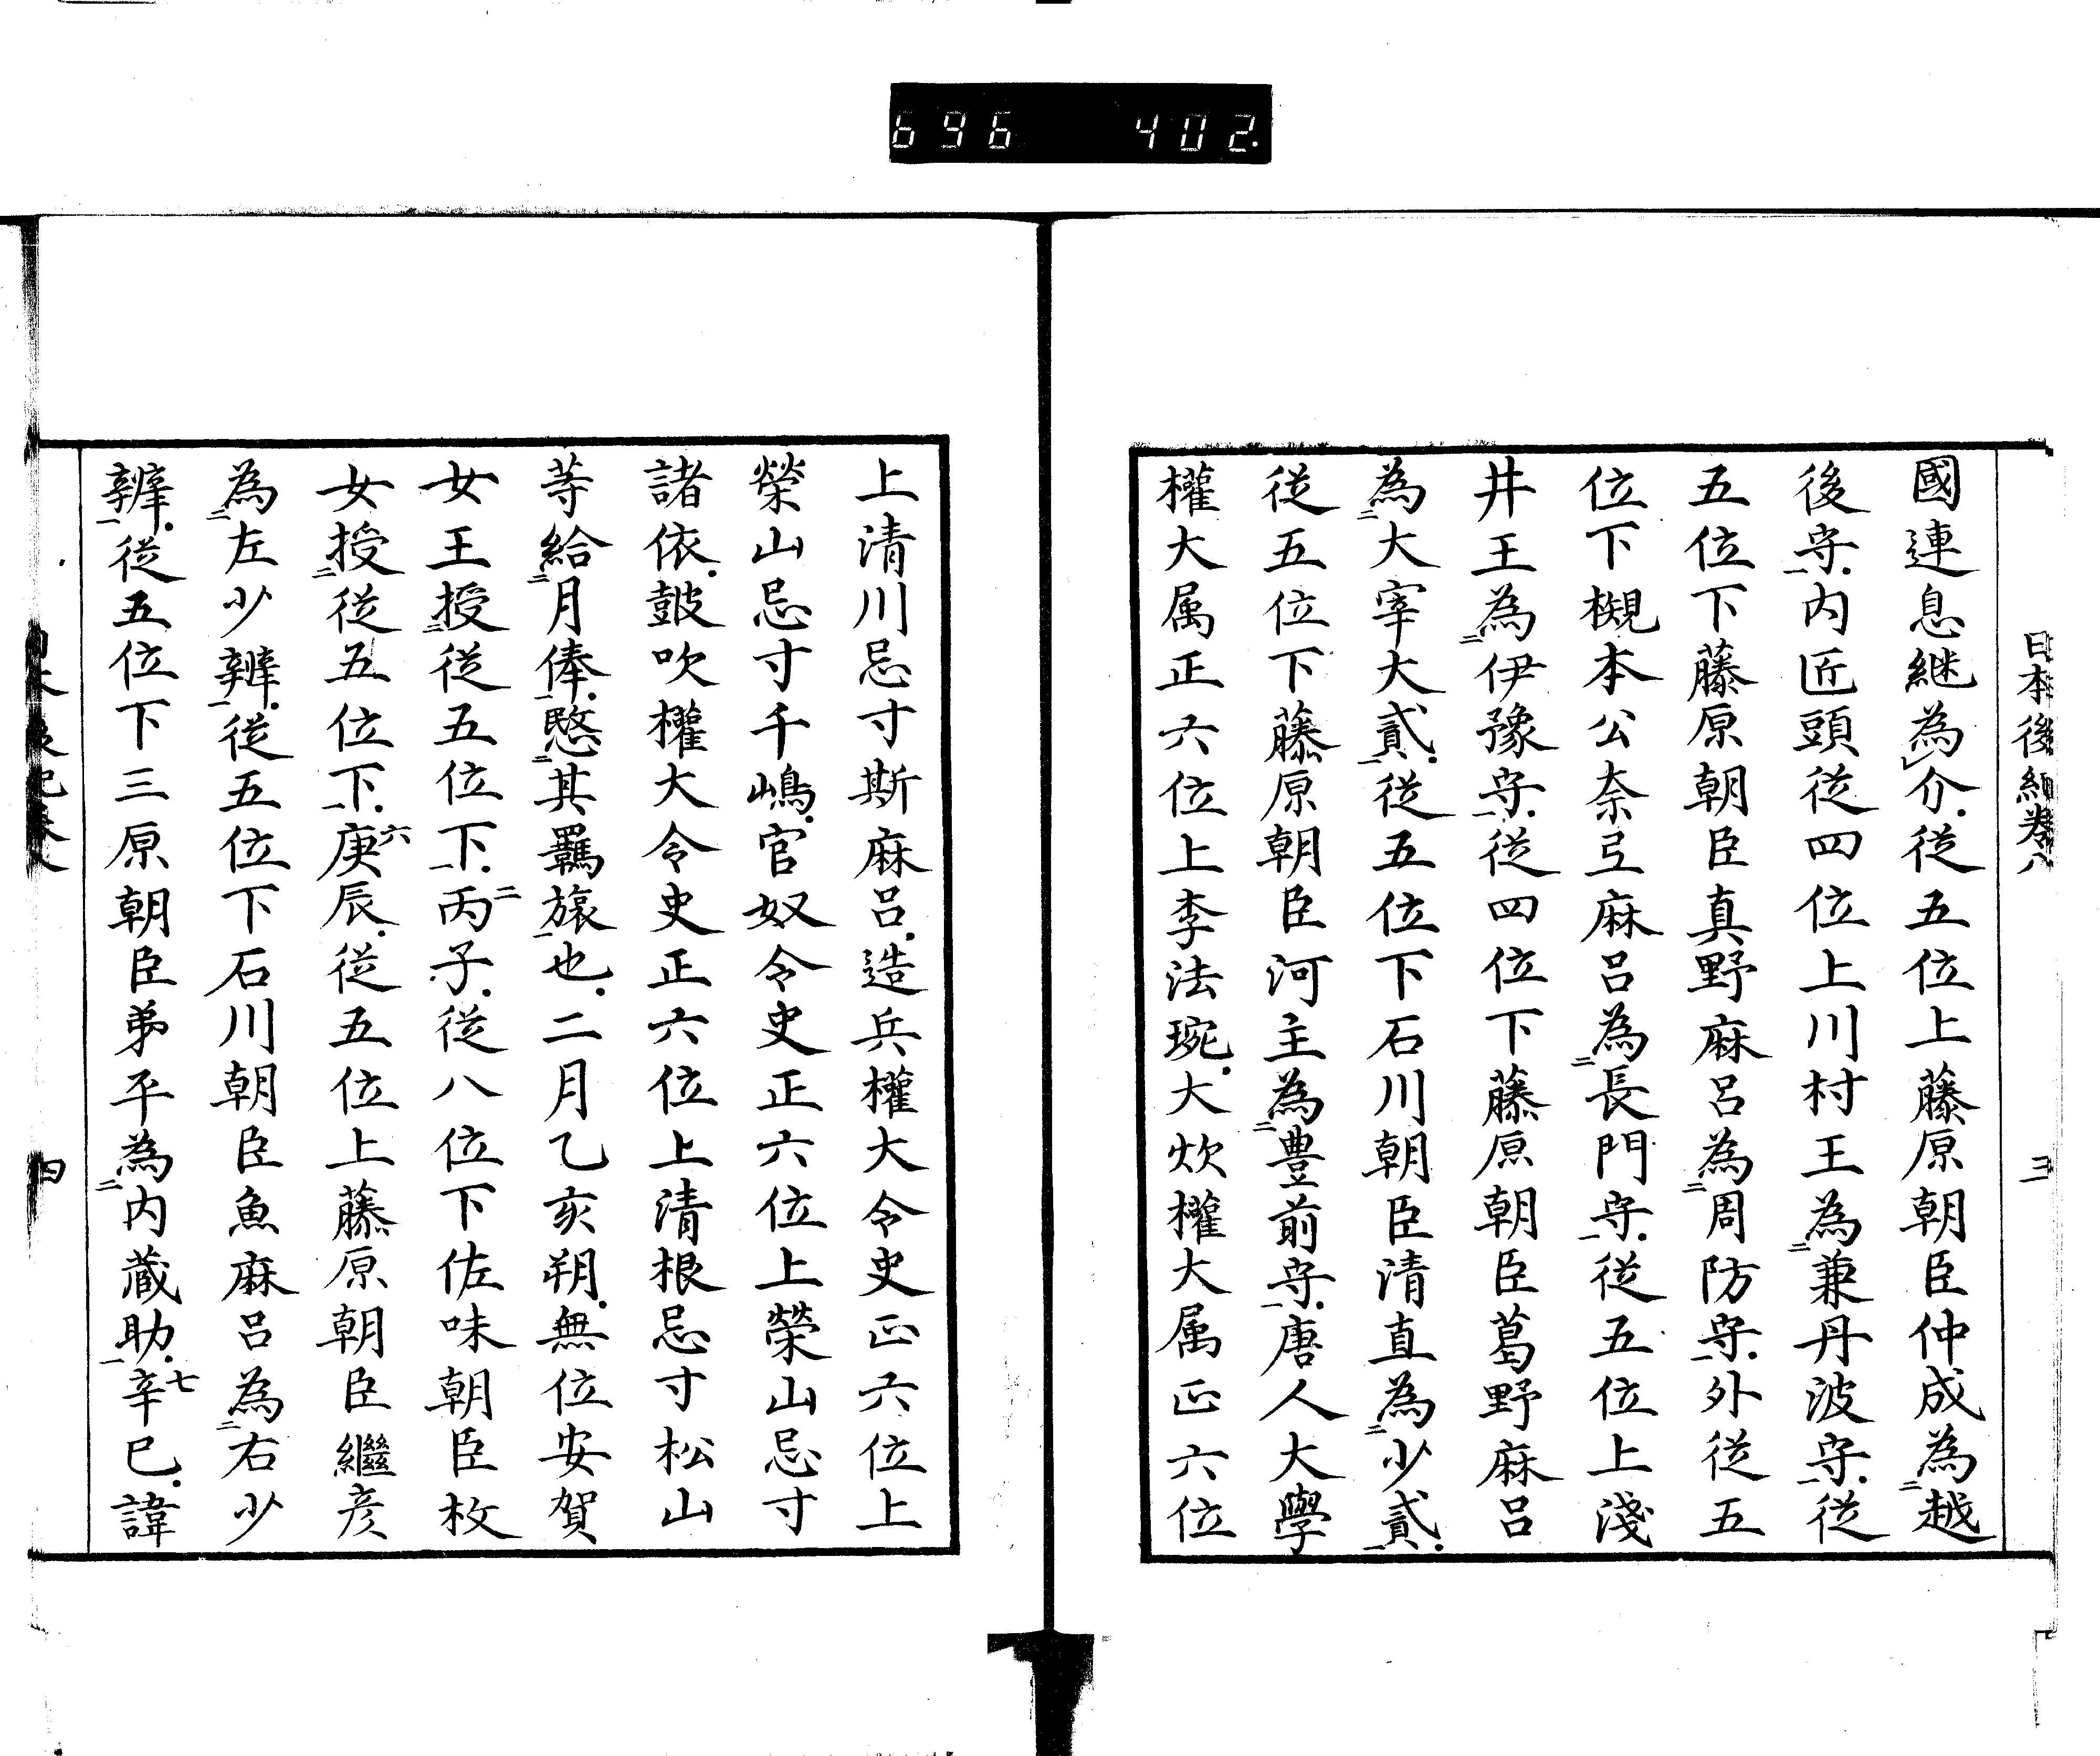 696 402.
日本後紀卷八 三
國連息継為介從五位上藤原朝臣仲成為二越
後守一内匠頭從四位上川村王為二兼丹波守一從
五位下藤原朝臣真野麻呂為二周防守一外從五
位下槻本公奈弖麻呂為二長門守一從五位上淺
井王為二伊豫守一從四位下藤原朝臣葛野麻呂
為二大宰大貳一從五位下石川朝臣清直為二少貳一
從五位下藤原朝臣河主為二豊前守一唐人大學
權大属正六位上李法琬大炊權大属正六位
上清川忌寸斯麻呂造兵權大令史正六位上
榮山忌寸千嶋官奴令史正六位上榮山忌寸
諸依鼓吹權大令史正六位上清根忌寸松山
等給二月俸一愍二其羈旅一也二月乙亥朔無位安賀
女王授二從五位下一丙二子從八位下佐味朝臣枚
女授二從五位下一庚六辰從五位上藤原朝臣繼彦
為二左少辨一從五位下石川朝臣魚麻呂為二右少
辨一從五位下三原朝臣弟平為二内蔵助一辛七巳諱
四